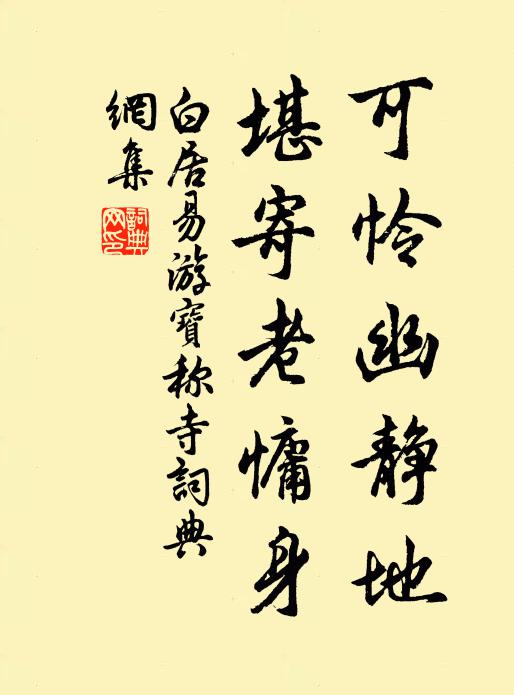 可怜幽静地
堪寄老慵身
白居易游寶称寺詞典
網集
詞典
网印